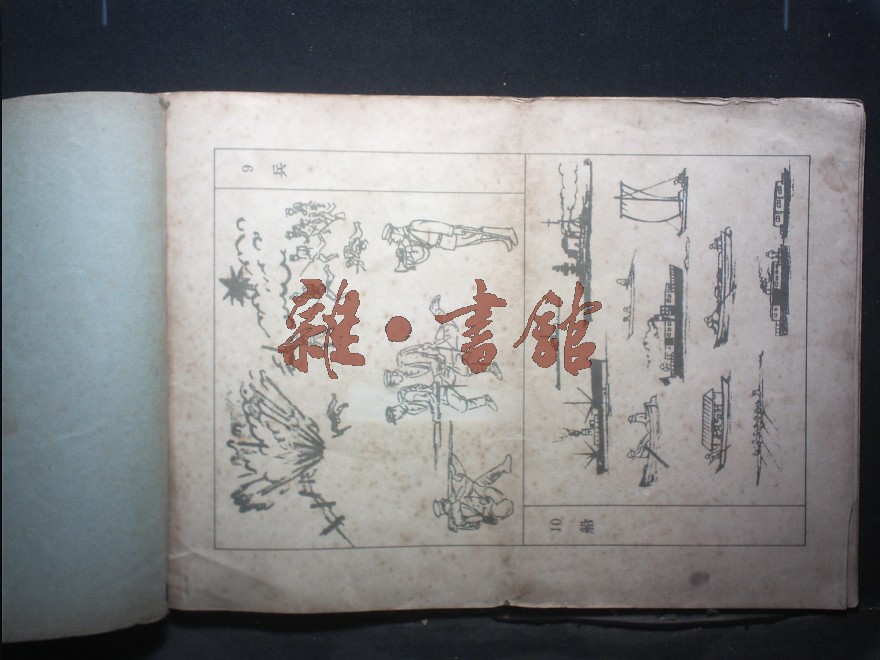 9 兵
雜·書館
10 船